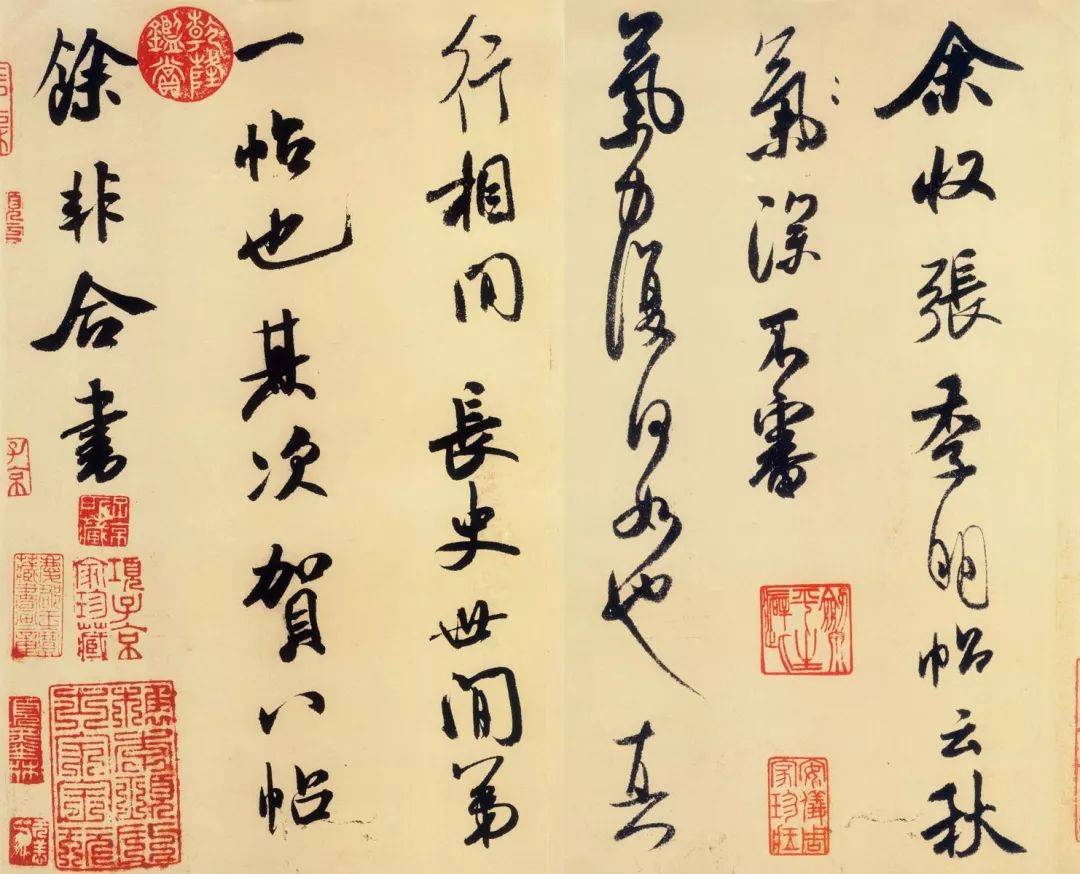 余收張季明帖云秋
氣深不審
氣力復何如也真
行相間長史世間第
一帖也其次賀八帖
餘非合書
安儀周家珍藏
乾隆鑑賞
項子京家珍藏
子京